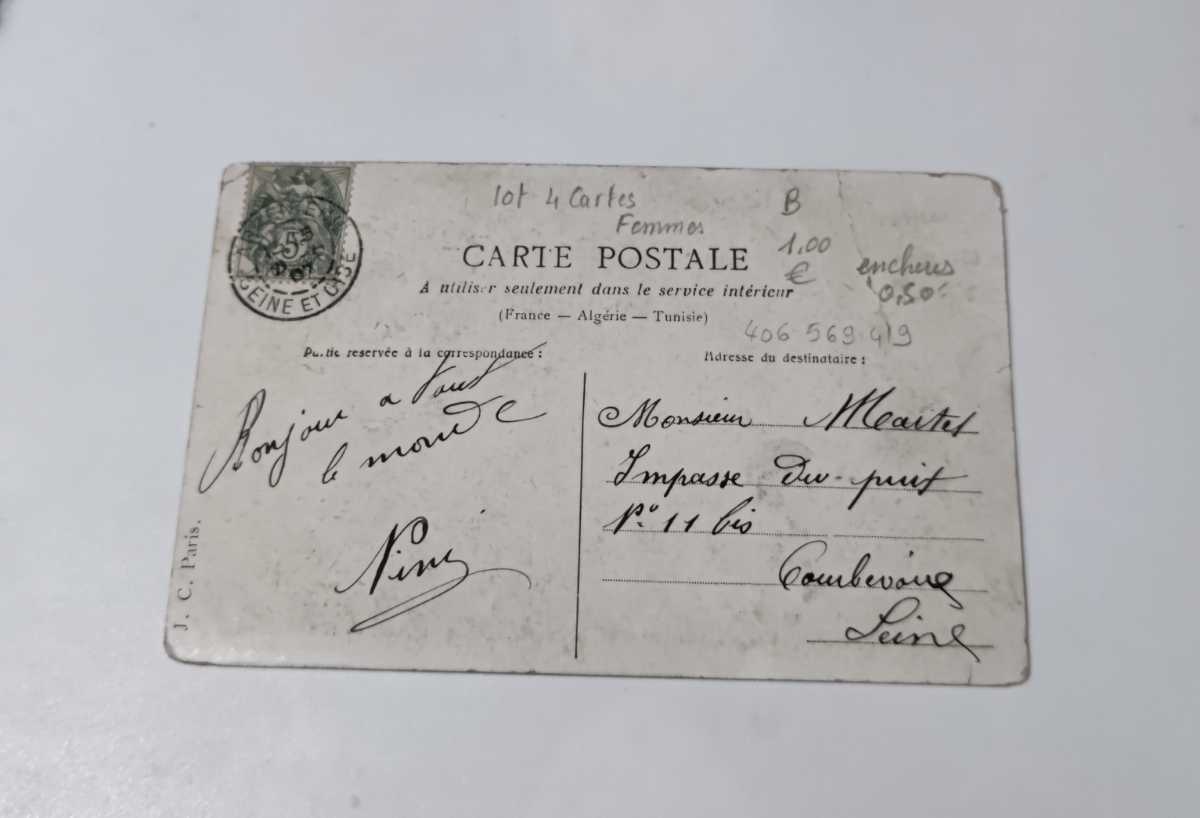 lot 4 Cartes
Femmes
B
1,00
€
encheres
0,50
CARTE POSTALE
A utiliser seulement dans le service intérieur
(France — Algérie — Tunisie)
406 569 419
Partie reservée à la correspondance :
Adresse du destinataire :
5
07
SEINE ET OISE
Bonjour a tout
le monde
Nini
Monsieur Martel
Impasse Du puit
No 11 bis
Courbevoie
Seine
J. C. Paris.